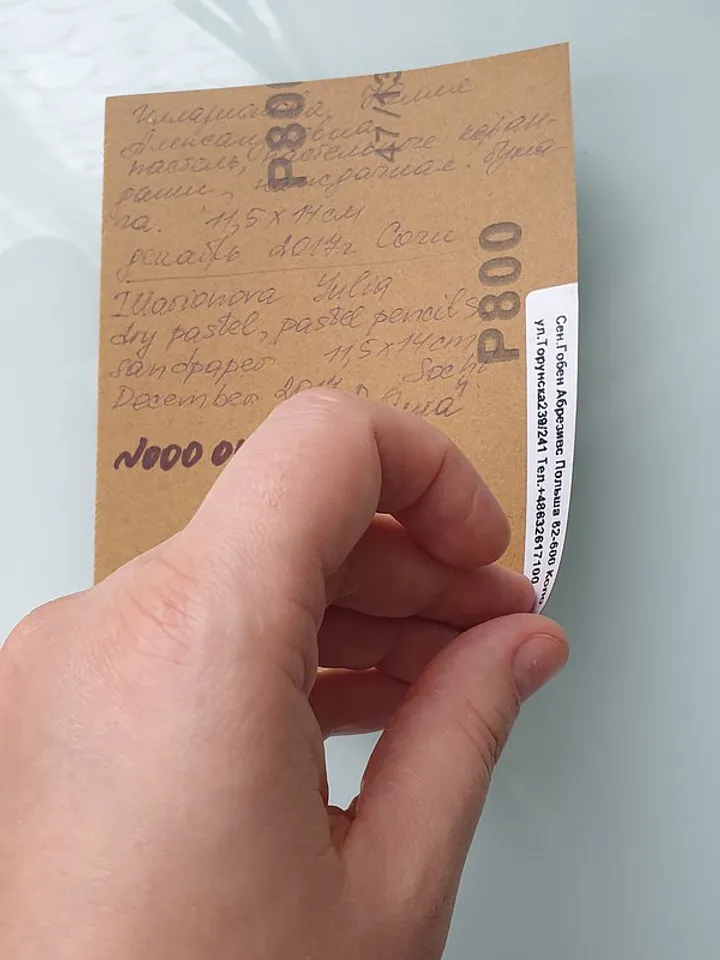 Илларионова Юлия
Александровна
пастель, пастельные каран-
даши, наждачная бума-
га. 11,5 х 14 см
декабрь 2017 г Сочи
Illarionova Yulia
dry pastel, pastel pencils
sandpaper 11,5 x 14 cm
December 2017 Sochi
№000
P800
47/13
P800
Сен.Гобен Абрезивс Польша 62-600
ул.Торунска239/241 Тел.+48632617100